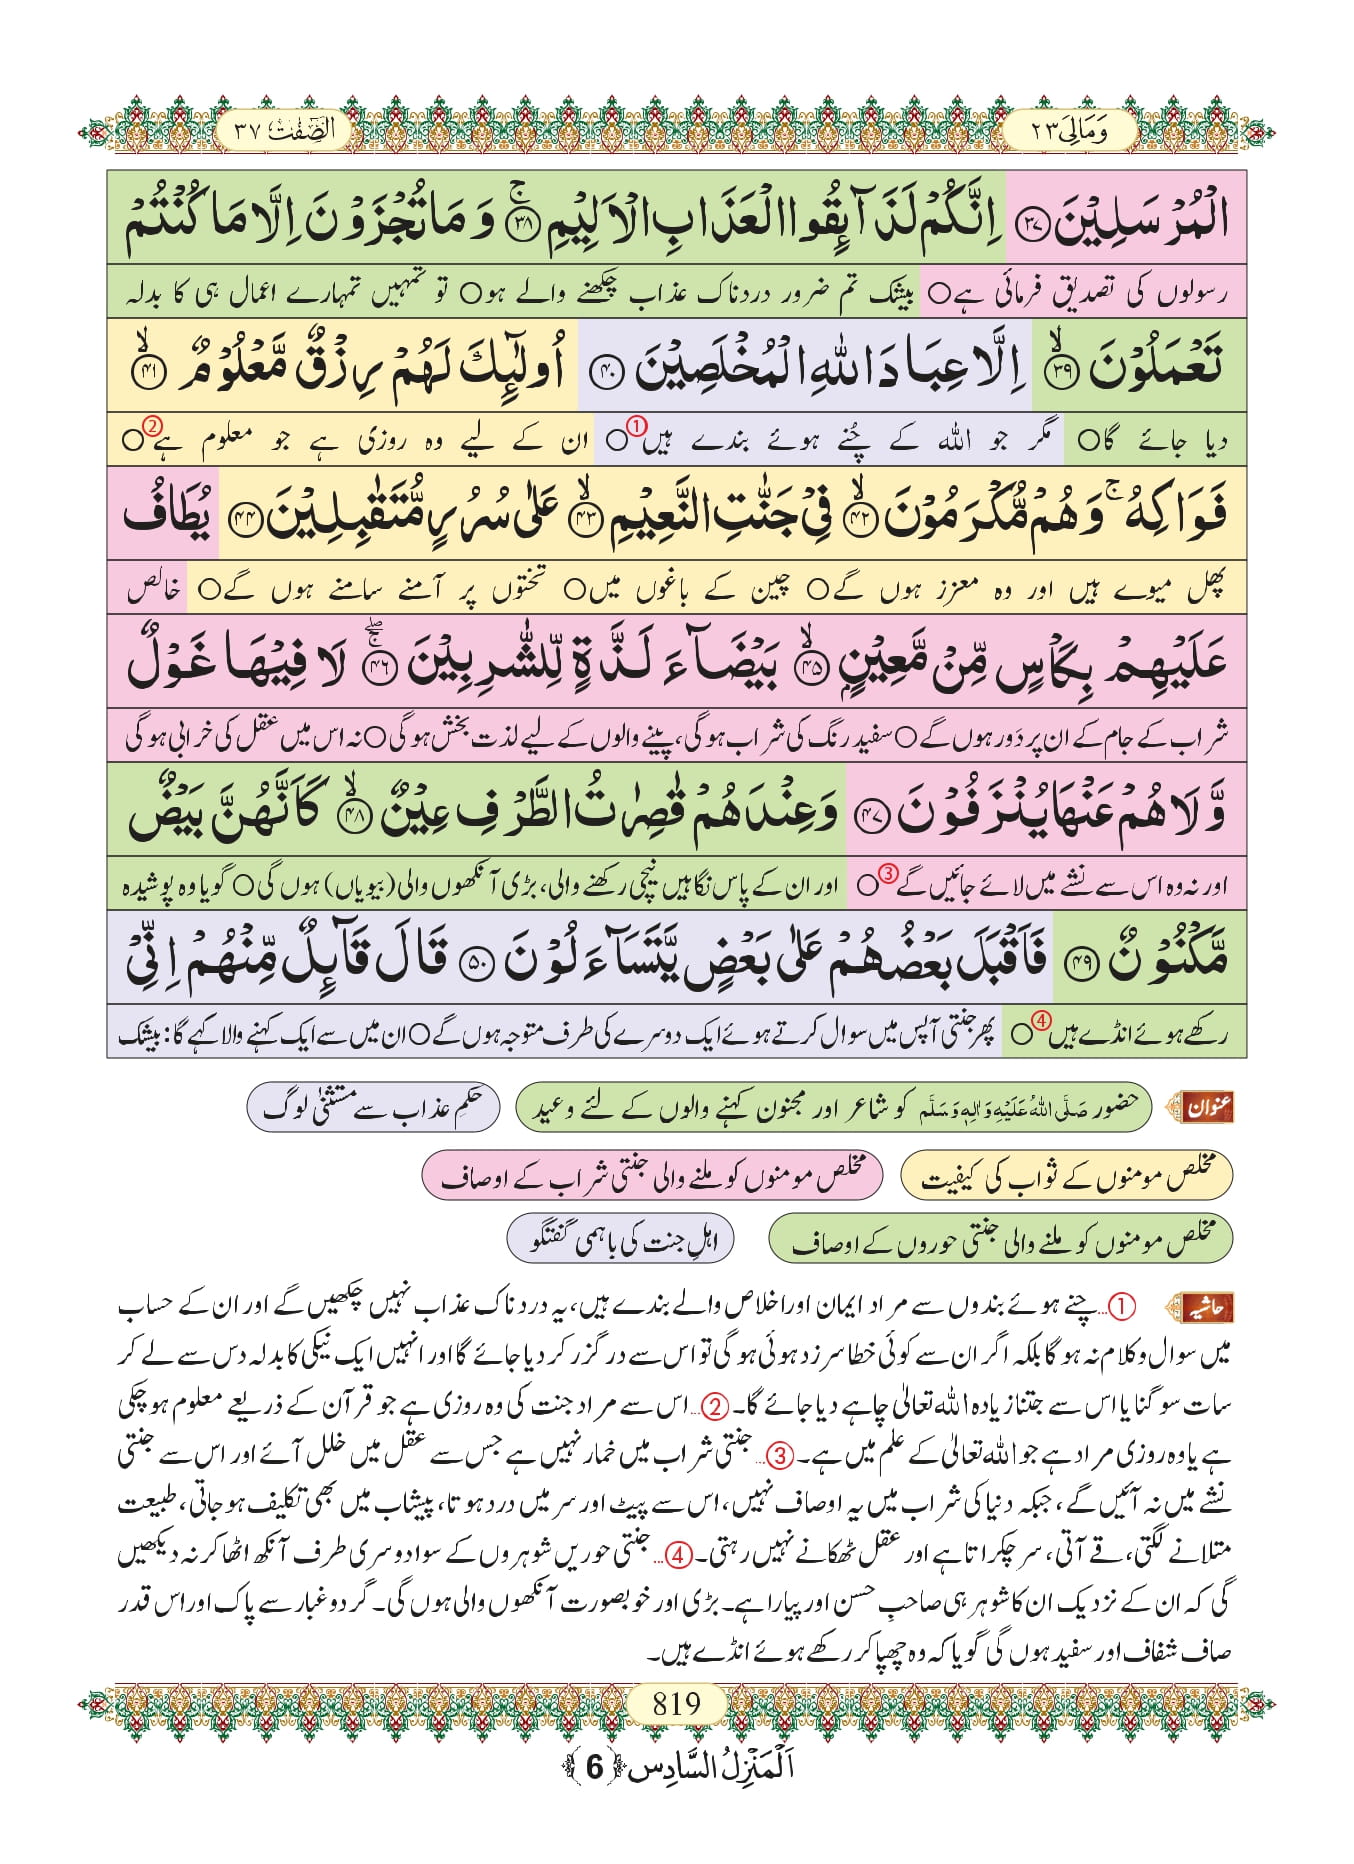 وَمَالِیَ ۲۳
الصّٰٓفّٰت ۳۷
الْمُرْسَلِیْنَ ﴿۳۷﴾ اِنَّكُمْ لَذَآىٕقُوا الْعَذَابِ الْاَلِیْمِ ﴿۳۸﴾ۚ وَ مَا تُجْزَوْنَ اِلَّا مَا كُنْتُمْ
رسولوں کی تصدیق فرمائی ہے○ بیشک تم ضرور دردناک عذاب چکھنے والے ہو○ تو تمہیں تمہارے اعمال ہی کا بدلہ
تَعْمَلُوْنَ ﴿۳۹﴾ۙ اِلَّا عِبَادَ اللّٰهِ الْمُخْلَصِیْنَ ﴿۴۰﴾ اُولٰٓىٕكَ لَهُمْ رِزْقٌ مَّعْلُوْمٌ ﴿۴۱﴾ۙ
دیا جائے گا○ مگر جو اللہ کے چُنے ہوئے بندے ہیں○① ان کے لیے وہ روزی ہے جو معلوم ہے○②
فَوَاكِهُۚ وَ هُمْ مُّكْرَمُوْنَ ﴿۴۲﴾ۙ فِیْ جَنّٰتِ النَّعِیْمِ ﴿۴۳﴾ۙ عَلٰى سُرُرٍ مُّتَقٰبِلِیْنَ ﴿۴۴﴾ یُطَافُ
پھل میوے ہیں اور وہ معزز ہوں گے○ چین کے باغوں میں○ تختوں پر آمنے سامنے ہوں گے○ خالص
عَلَیْهِمْ بِكَاْسٍ مِّنْ مَّعِیْنٍۭ ﴿۴۵﴾ۙ بَیْضَآءَ لَذَّةٍ لِّلشّٰرِبِیْنَ ﴿۴۶﴾ۚۖ لَا فِیْهَا غَوْلٌ
شراب کے جام کے ان پر دَور ہوں گے○ سفید رنگ کی شراب ہوگی، پینے والوں کے لیے لذت بخش ہوگی○ نہ اس میں عقل کی خرابی ہوگی
وَّ لَا هُمْ عَنْهَا یُنْزَفُوْنَ ﴿۴۷﴾ وَ عِنْدَهُمْ قٰصِرٰتُ الطَّرْفِ عِیْنٌ ﴿۴۸﴾ۙ كَاَنَّهُنَّ بَیْضٌ
اور نہ وہ اس سے نشے میں لائے جائیں گے○③ اور ان کے پاس نگاہیں نیچی رکھنے والی، بڑی آنکھوں والی (بیویاں) ہوں گی○ گویا وہ پوشیدہ
مَّكْنُوْنٌ ﴿۴۹﴾ فَاَقْبَلَ بَعْضُهُمْ عَلٰى بَعْضٍ یَّتَسَآءَلُوْنَ ﴿۵۰﴾ قَالَ قَآىٕلٌ مِّنْهُمْ اِنِّیْ
رکھے ہوئے انڈے ہیں○④ پھر جنتی آپس میں سوال کرتے ہوئے ایک دوسرے کی طرف متوجہ ہوں گے○ ان میں سے ایک کہنے والا کہے گا: بیشک
عنوان حضور صَلَّی اللہُ عَلَیْہِ وَاٰلِہٖ وَسَلَّم کو شاعر اور مجنون کہنے والوں کے لئے وعید حکمِ عذاب سے مستثنیٰ لوگ
مخلص مومنوں کے ثواب کی کیفیت مخلص مومنوں کو ملنے والی جنتی شراب کے اوصاف
مخلص مومنوں کو ملنے والی جنتی حوروں کے اوصاف اہلِ جنت کی باہمی گفتگو
حاشیہ ①...چنے ہوئے بندوں سے مراد ایمان اور اخلاص والے بندے ہیں، یہ دردناک عذاب نہیں چکھیں گے اور ان کے حساب
میں سوال و کلام نہ ہوگا بلکہ اگر ان سے کوئی خطا سرزد ہوئی ہوگی تو اس سے درگزر کر دیا جائے گا اور انہیں ایک نیکی کا بدلہ دس سے لے کر
سات سو گنا یا اس سے جتنا زیادہ اللہ تعالیٰ چاہے دیا جائے گا۔ ②...اس سے مراد جنت کی وہ روزی ہے جو قرآن کے ذریعے معلوم ہوچکی
ہے یا وہ روزی مراد ہے جو اللہ تعالیٰ کے علم میں ہے۔ ③...جنتی شراب میں خمار نہیں ہے جس سے عقل میں خلل آئے اور اس سے جنتی
نشے میں نہ آئیں گے، جبکہ دنیا کی شراب میں یہ اوصاف نہیں، اس سے پیٹ اور سر میں درد ہوتا، پیشاب میں بھی تکلیف ہوجاتی، طبیعت
متلانے لگتی، قے آتی، سر چکراتا ہے اور عقل ٹھکانے نہیں رہتی۔ ④...جنتی حوریں شوہروں کے سوا دوسری طرف آنکھ اٹھا کر نہ دیکھیں
گی کہ ان کے نزدیک ان کا شوہر ہی صاحبِ حسن اور پیارا ہے۔ بڑی اور خوبصورت آنکھوں والی ہوں گی۔ گرد و غبار سے پاک اور اس قدر
صاف شفاف اور سفید ہوں گی گویا کہ وہ چھپا کر رکھے ہوئے انڈے ہیں۔
819
اَلْمَنْزِلُ السَّادِس ﴿6﴾